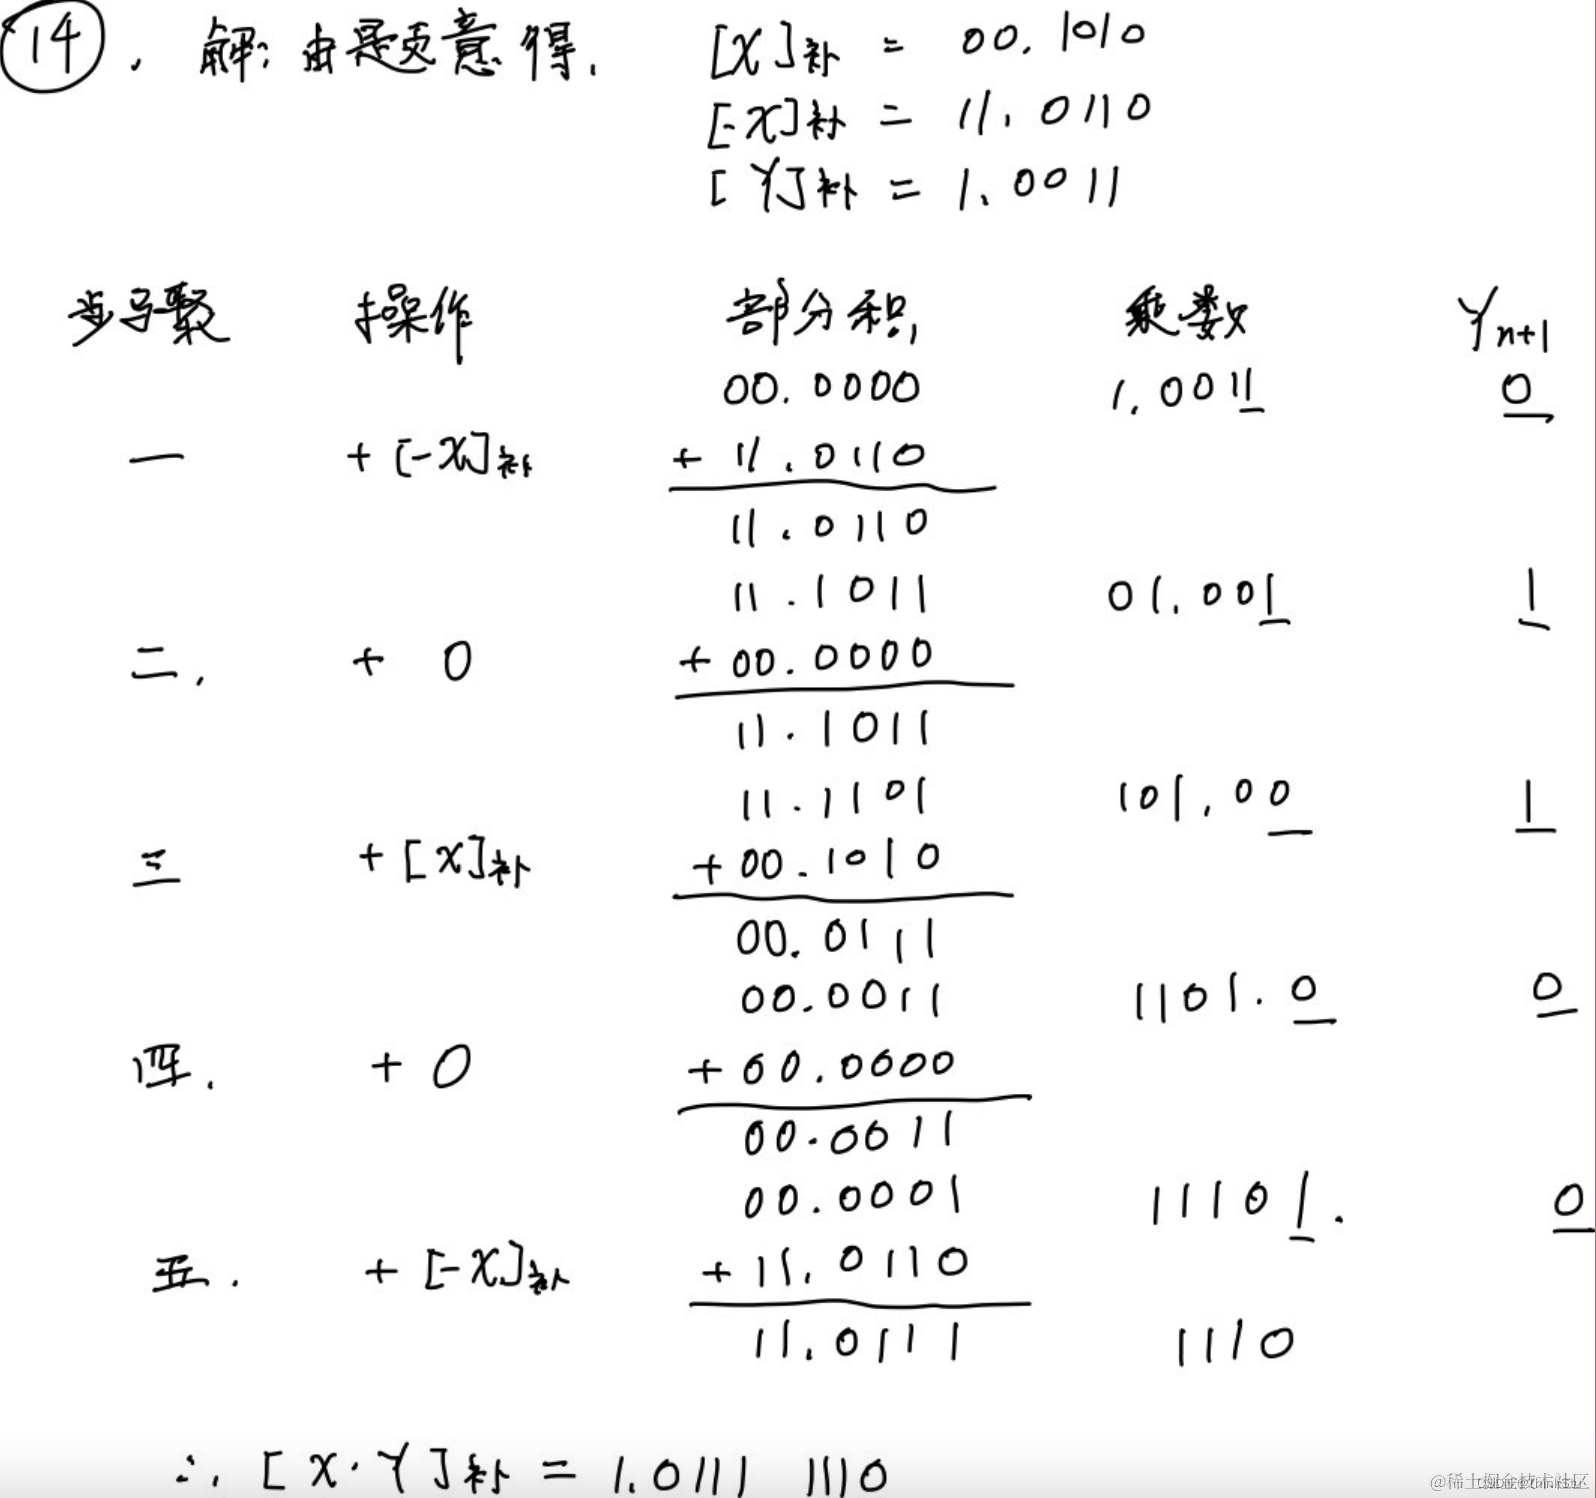 14. 解:由题意得. [X]补 = 00.1010
[-X]补 = 11.0110
[Y]补 = 1.0011
步骤 操作 部分积 乘数 Yn+1
00.0000 1.0011 0
一 +[-X]补 + 11.0110
11.0110
11.1011 01.001 1
二. + 0 + 00.0000
11.1011
11.1101 101.00 1
三 +[X]补 + 00.1010
00.0111
00.0011 1101.0 0
四. + 0 + 00.0000
00.0011
00.0001 11101. 0
五. + [-X]补 + 11.0110
11.0111 1110
∴ [X·Y]补 = 1.0111 1110
@稀土掘金技术社区